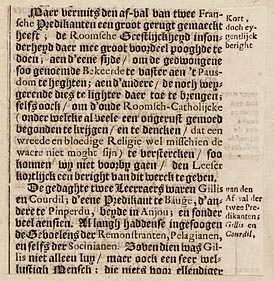 Maer vermits den af-val van twee Fransche
Predikanten een groot gerugt gemaeckt
heeft; de Roomsche Geestlijckheyd insonderheyd
daer mee groot voordeel pooghde te
doen; aen d'eene sijde/ om de gedwongene
soo genoemde Bekeerde te vaster aen 't Pausdom
te heghten; aen d'andere/ de noch weygerende
dies te lighter daer toe te brengen:
selfs oock/ om d'onde Roomsch-Catholijcke
(onder welcke al veele een ongerust gemoed
begonden te krijgen/ en te dencken/ dat een
wreede en bloedige Religie wel misschien de
ware niet moght sijn) te verstercken/ soo
konnen wy niet voorby gaen/ den Leeser
kortlijck een beright van dit werck te geven.
De gedaghte twee Leerraers waren Gillis
en Courdil; d'eene Predikant te Baugé, d'andere
te Pinperdu, beyde in Anjou; en sonder
veel aensien. Al langh haddense ingesoogen
de Gevoelens der Remonstranten, Pelagianen,
en selfs der Socinianen. Boven dien was Gillis
niet alleen luy/ maer oock een seer wellustich
Mensch; die niets voor ellendiger
Kort,
doch eygentlijck
beright
van den
Af-val der
twee Predikanten;
Gillis en
Courdil,